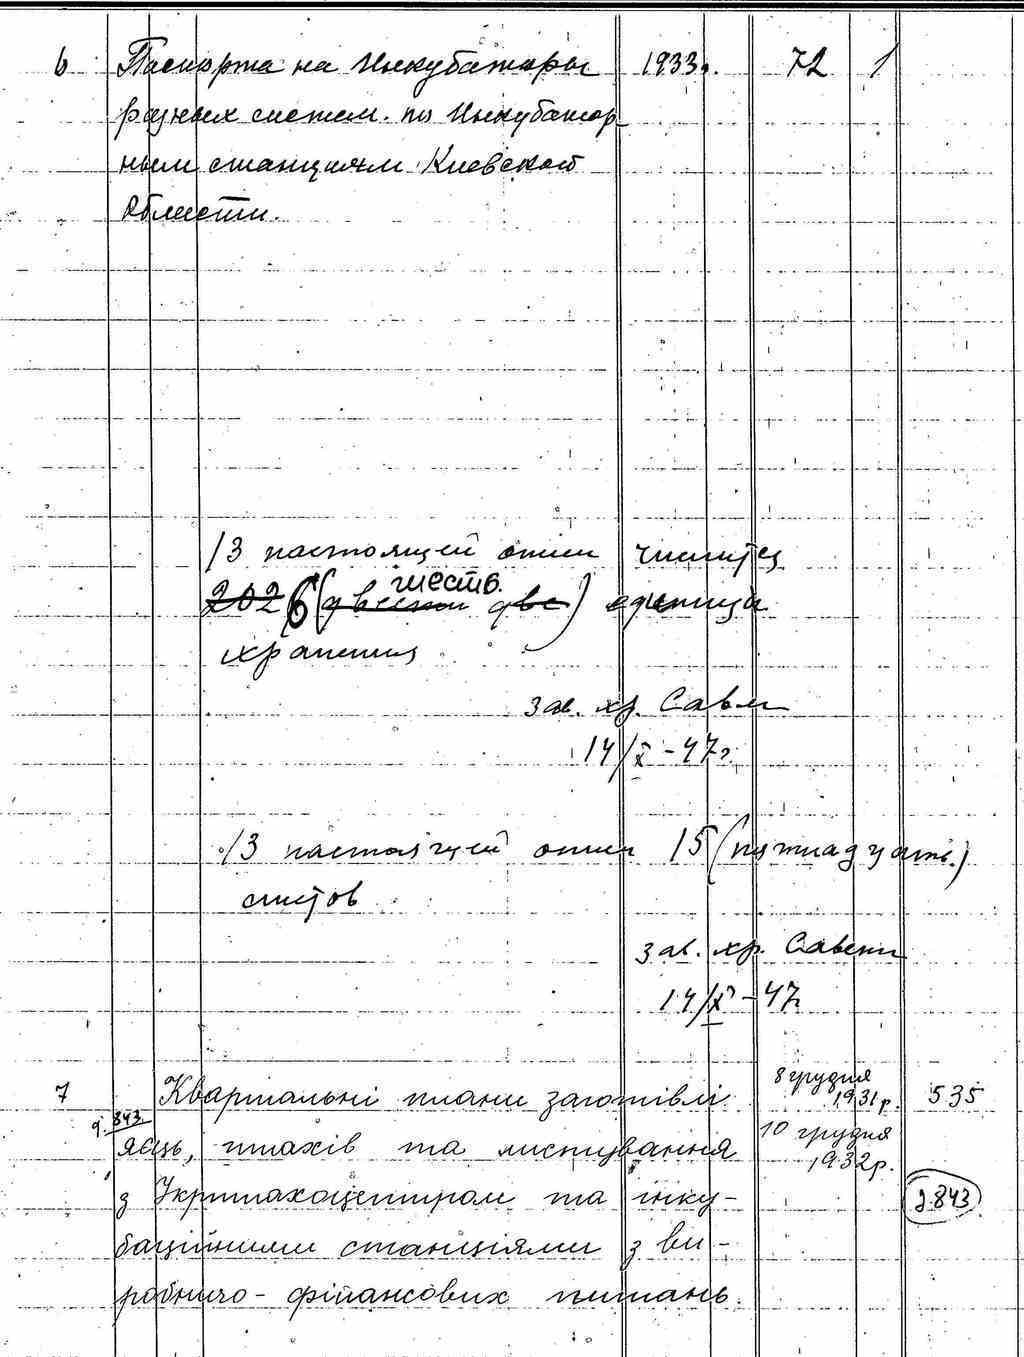 6 Паспорта на Инкубаторы 1933г. 72 1
разных систем. по Инкубатор-
ным станциям Киевской
Области.
В настоящей описи числится
202 6 (двести две) шесть. единицы
хранения
зав. хр. Савен
14/X-47г.
В настоящей описи 15 (пятнадцать.)
листов
зав. хр. Савени
14/X-47г
7 Квартальні плани заготівлі 8 грудня 1931р. 535
д. 843.
яєць, птахів та листування 10 грудня 1932р.
з Укрптахоцентром та інку- д 843
баційними станціями з ви-
робничо-фінансових питань.